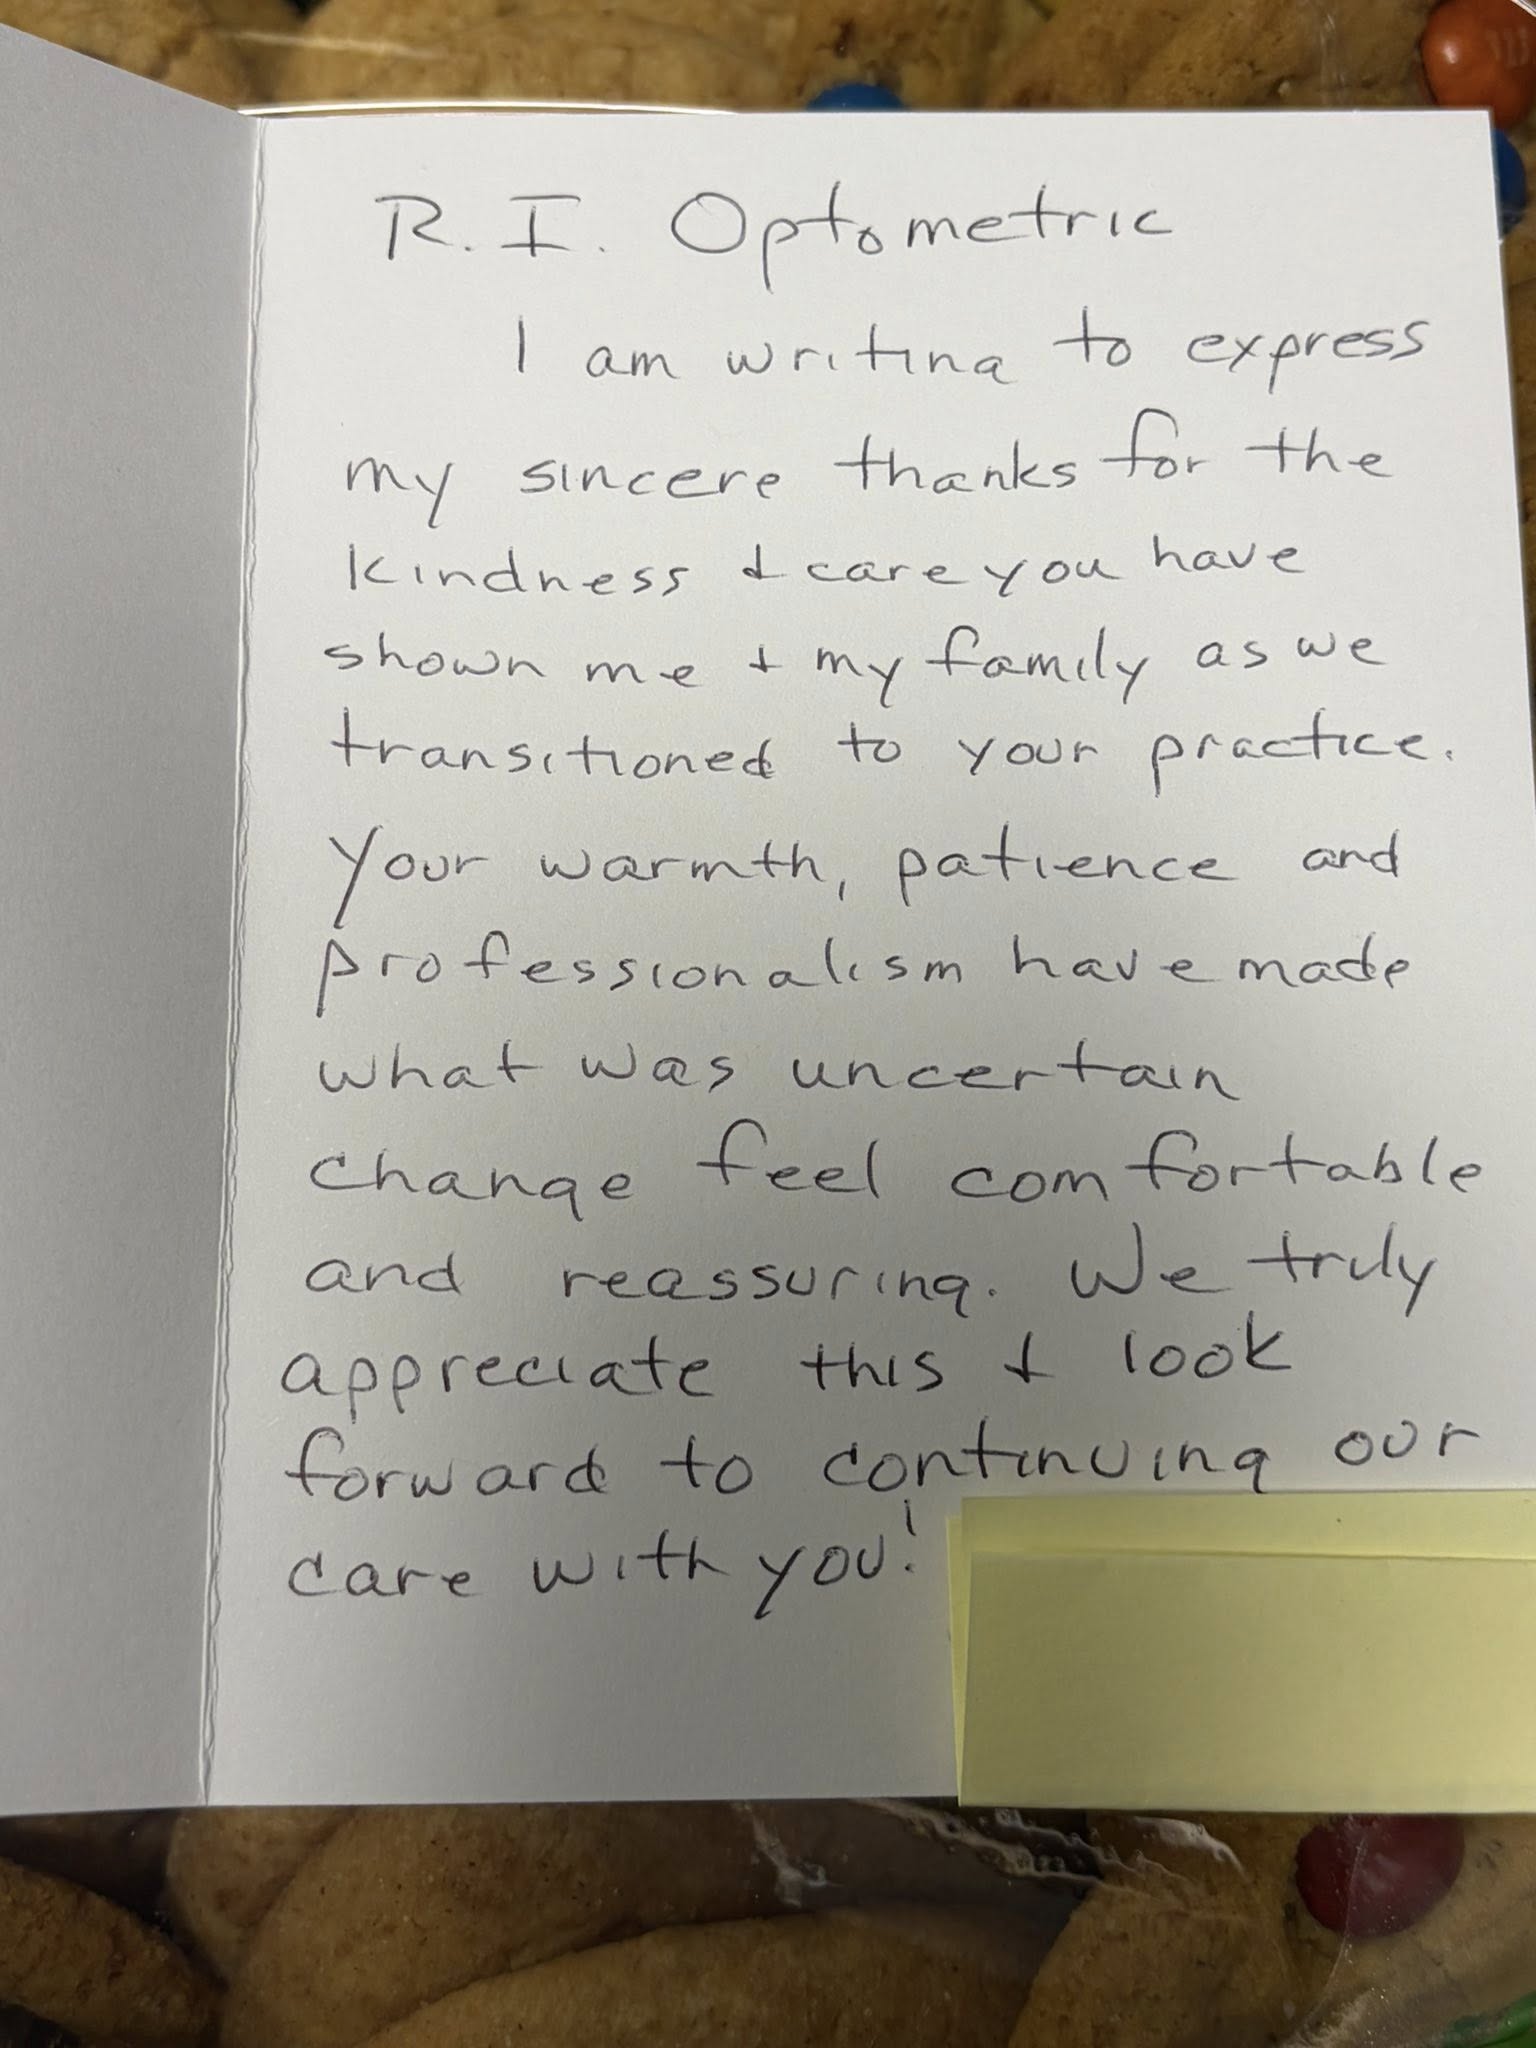 R. I. Optometric
I am writing to express
my sincere thanks for the
kindness & care you have
shown me & my family as we
transitioned to your practice.
Your warmth, patience and
professionalism have made
what was uncertain
change feel comfortable
and reassuring. We truly
appreciate this & look
forward to continuing our
care with you!